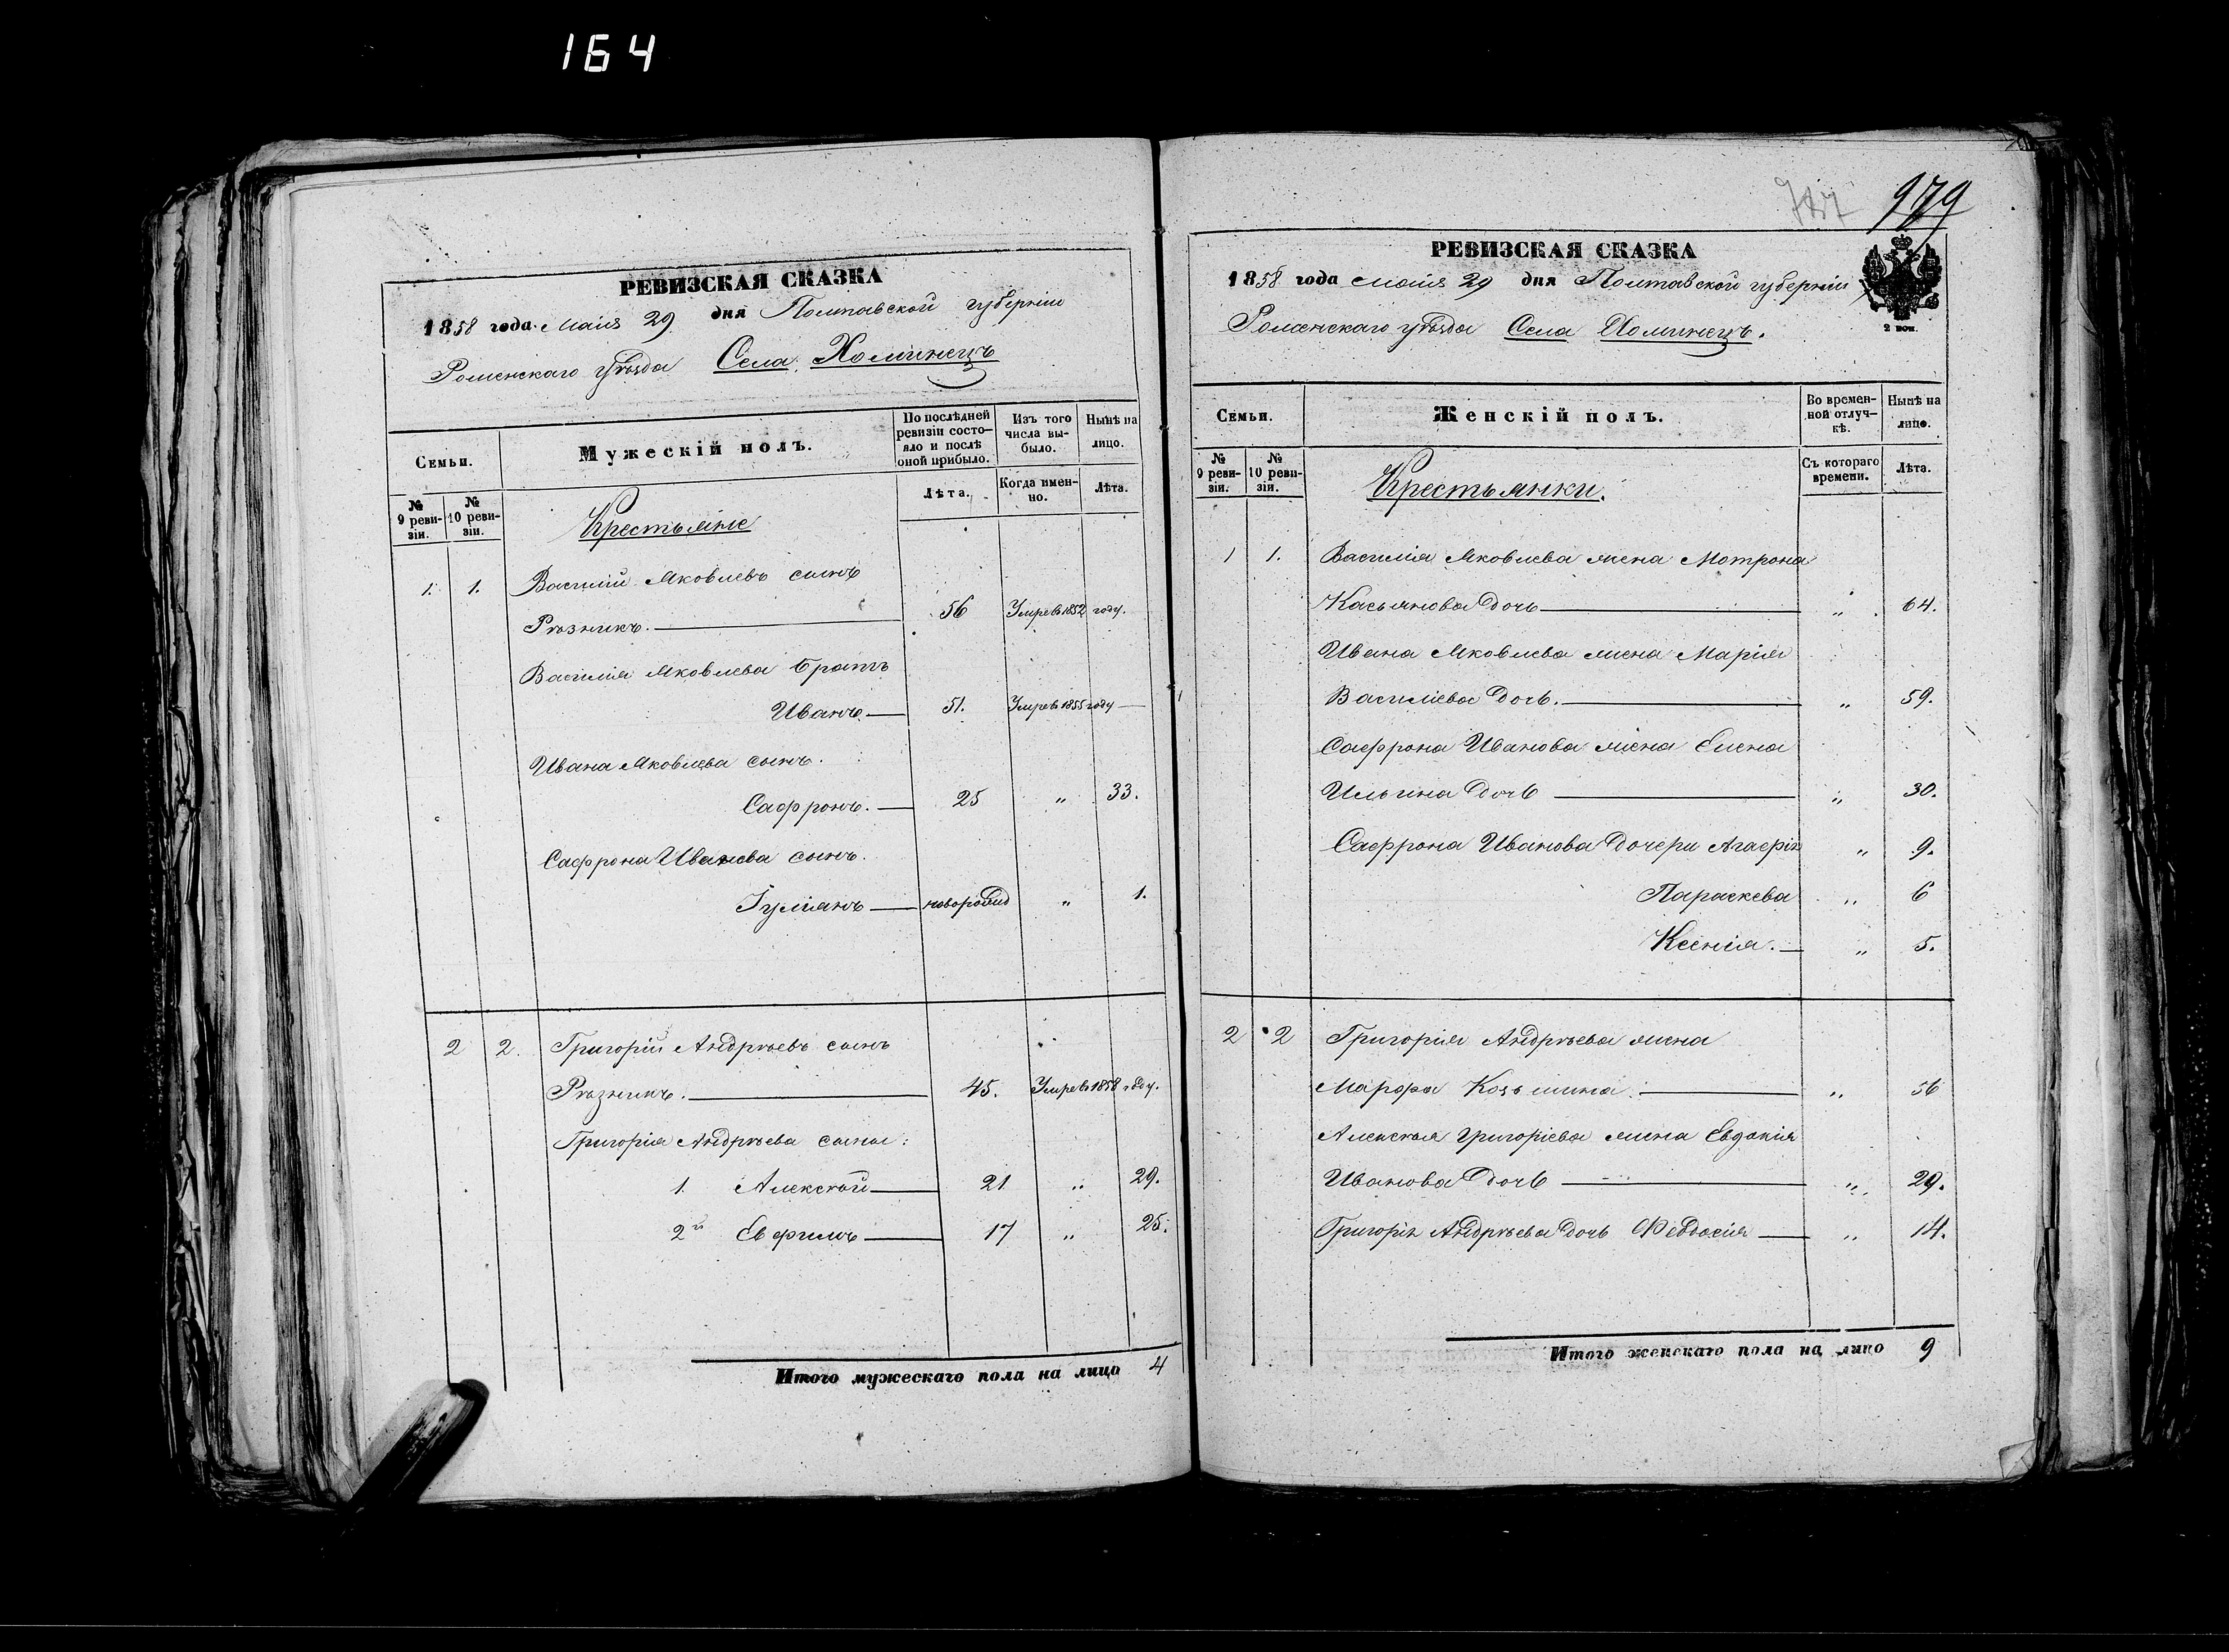 164
РЕВИЗСКАЯ СКАЗКА
1858 года Маія 29 дня Полтавской губерніи
Роменскаго уѣзда Села Хоминецъ
Семьи.
Мужескій полъ.
По послѣдней ревизіи состо-яло и послѣ оной прибыло.
Изъ того числа вы-было.
Нынѣ на лицо.
№ 9 реви-зіи.
№ 10 реви-зіи.
Крестьяне
Лѣта.
Когда имен-но.
Лѣта.
1. 1. Василій Яковлевъ сынъ
Рѣзникъ. 56 Умре въ 1852 году.
Василія Яковлева братъ
Иванъ 51. Умре въ 1855 году
Ивана Яковлева сынъ.
Сафронъ. 25 " 33.
Сафрона Иванова сынъ.
Іуліанъ новорожд " 1.
2 2. Григорій Андрѣевъ сынъ
Рѣзникъ. 45. Умре въ 1858 году.
Григорія Андрѣева сыны:
1. Алексѣй 21 " 29.
2й Евфимъ 17 " 25.
Итого мужескаго пола на лицо 4
979
РЕВИЗСКАЯ СКАЗКА
1858 года Маія 29 дня Полтавской губерніи
2 коп.
Роменскаго уѣзда Села Хоминецъ.
Семьи.
Женскій полъ.
Во времен-ной отлуч-кѣ.
Нынѣ на лицо.
№ 9 реви-зіи.
№ 10 реви-зіи.
Крестьянки.
Съ котораго времени.
Лѣта.
1 1. Василія Яковлева жена Мотрона
Касьянова дочь " 64.
Ивана Яковлева жена Марія
Василіева дочь. " 59.
Сафрона Иванова жена Елена
Ильина дочь " 30.
Сафрона Иванова дочери Агафія " 9.
Параскева " 6
Ксенія. " 5.
2 2 Григорія Андрѣева жена
Марфа Козьмина. " 56
Алексѣя Григоріева жена Евдокія
Иванова дочь " 29.
Григорія Андрѣева дочь Февдосія " 14.
Итого женскаго пола на лицо 9